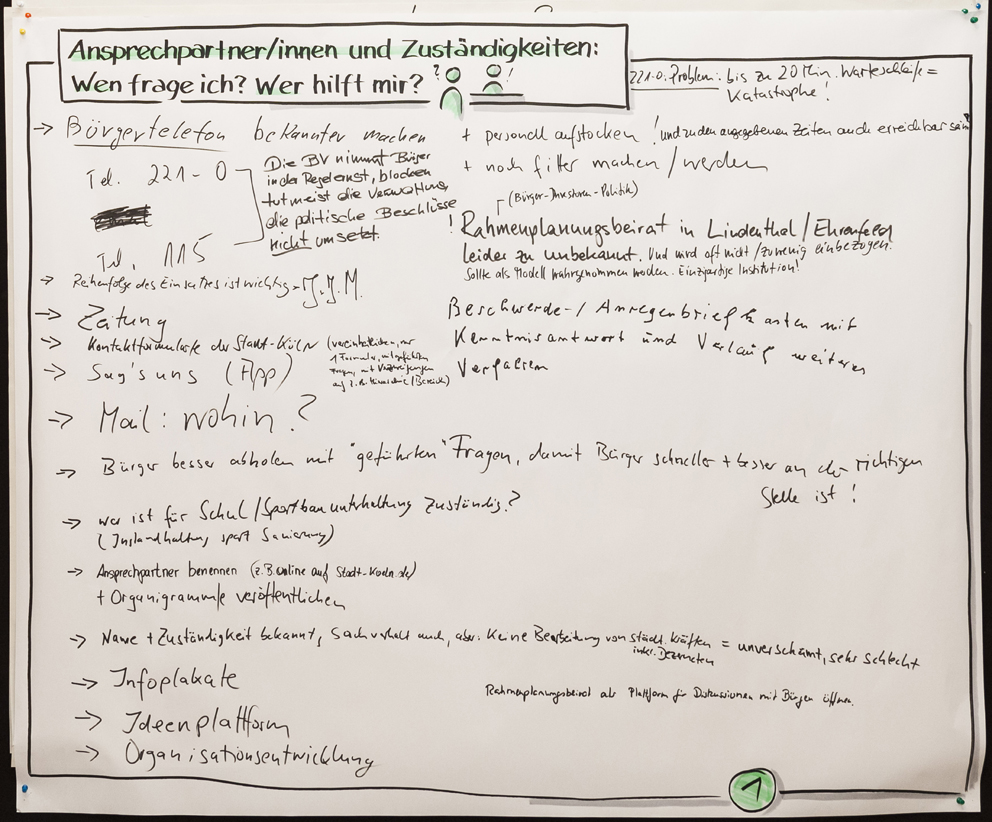 Ansprechpartner/innen und Zuständigkeiten:
Wen frage ich? Wer hilft mir?
? !
221-0. Problem: bis zu 20 Min. Warteschleife =
Katastrophe!
→ Bürgertelefon bekannter machen
Tel. 221-0
Tel. 115
Die BV nimmt Bürger
in der Regel ernst, blocken
tut meist die Verwaltung,
die politische Beschlüsse
nicht umsetzt.
+ personell aufstocken! und zu den angegebenen Zeiten auch erreichbar sein
+ noch fitter machen / werden
(Bürger-Investoren-Politik)
! Rahmenplanungsbeirat in Lindenthal / Ehrenfeld
leider zu unbekannt. Und wird oft nicht / zu wenig einbezogen.
Sollte als Modell wahrgenommen werden. Einzigartige Institution!
→ Reihenfolge des Einsatzes ist wichtig
→ Zeitung
→ Kontaktformulare der Stadt-Köln (vereinheitlichen, nur
1 Formular, mit geführten
Fragen, mit Verzweigungen
auf z.B. (Bereich)
→ Sag's uns (App)
Beschwerde-/ Anregenbriefkasten mit
Kenntnisantwort und Verlauf weiteren
Verfahren
→ Mail: wohin?
→ Bürger besser abholen mit "geführten" Fragen, damit Bürger schneller + besser an der richtigen
Stelle ist!
→ wer ist für Schul/Sportbauunterhaltung zuständig?
(Instandhaltung, Sanierung)
→ Ansprechpartner benennen (z.B. online auf Stadt-Koeln.de)
+ Organigramm/e veröffentlichen
→ Name + Zuständigkeit bekannt, Sachverhalt auch, aber: Keine Bearbeitung von städt. Kräften = unverschämt, sehr schlecht
inkl. Dezernenten
→ Infoplakate
Rahmenplanungsbeirat als Plattform für Diskussionen mit Bürgern öffnen.
→ Ideenplattform
→ Organisationsentwicklung
1